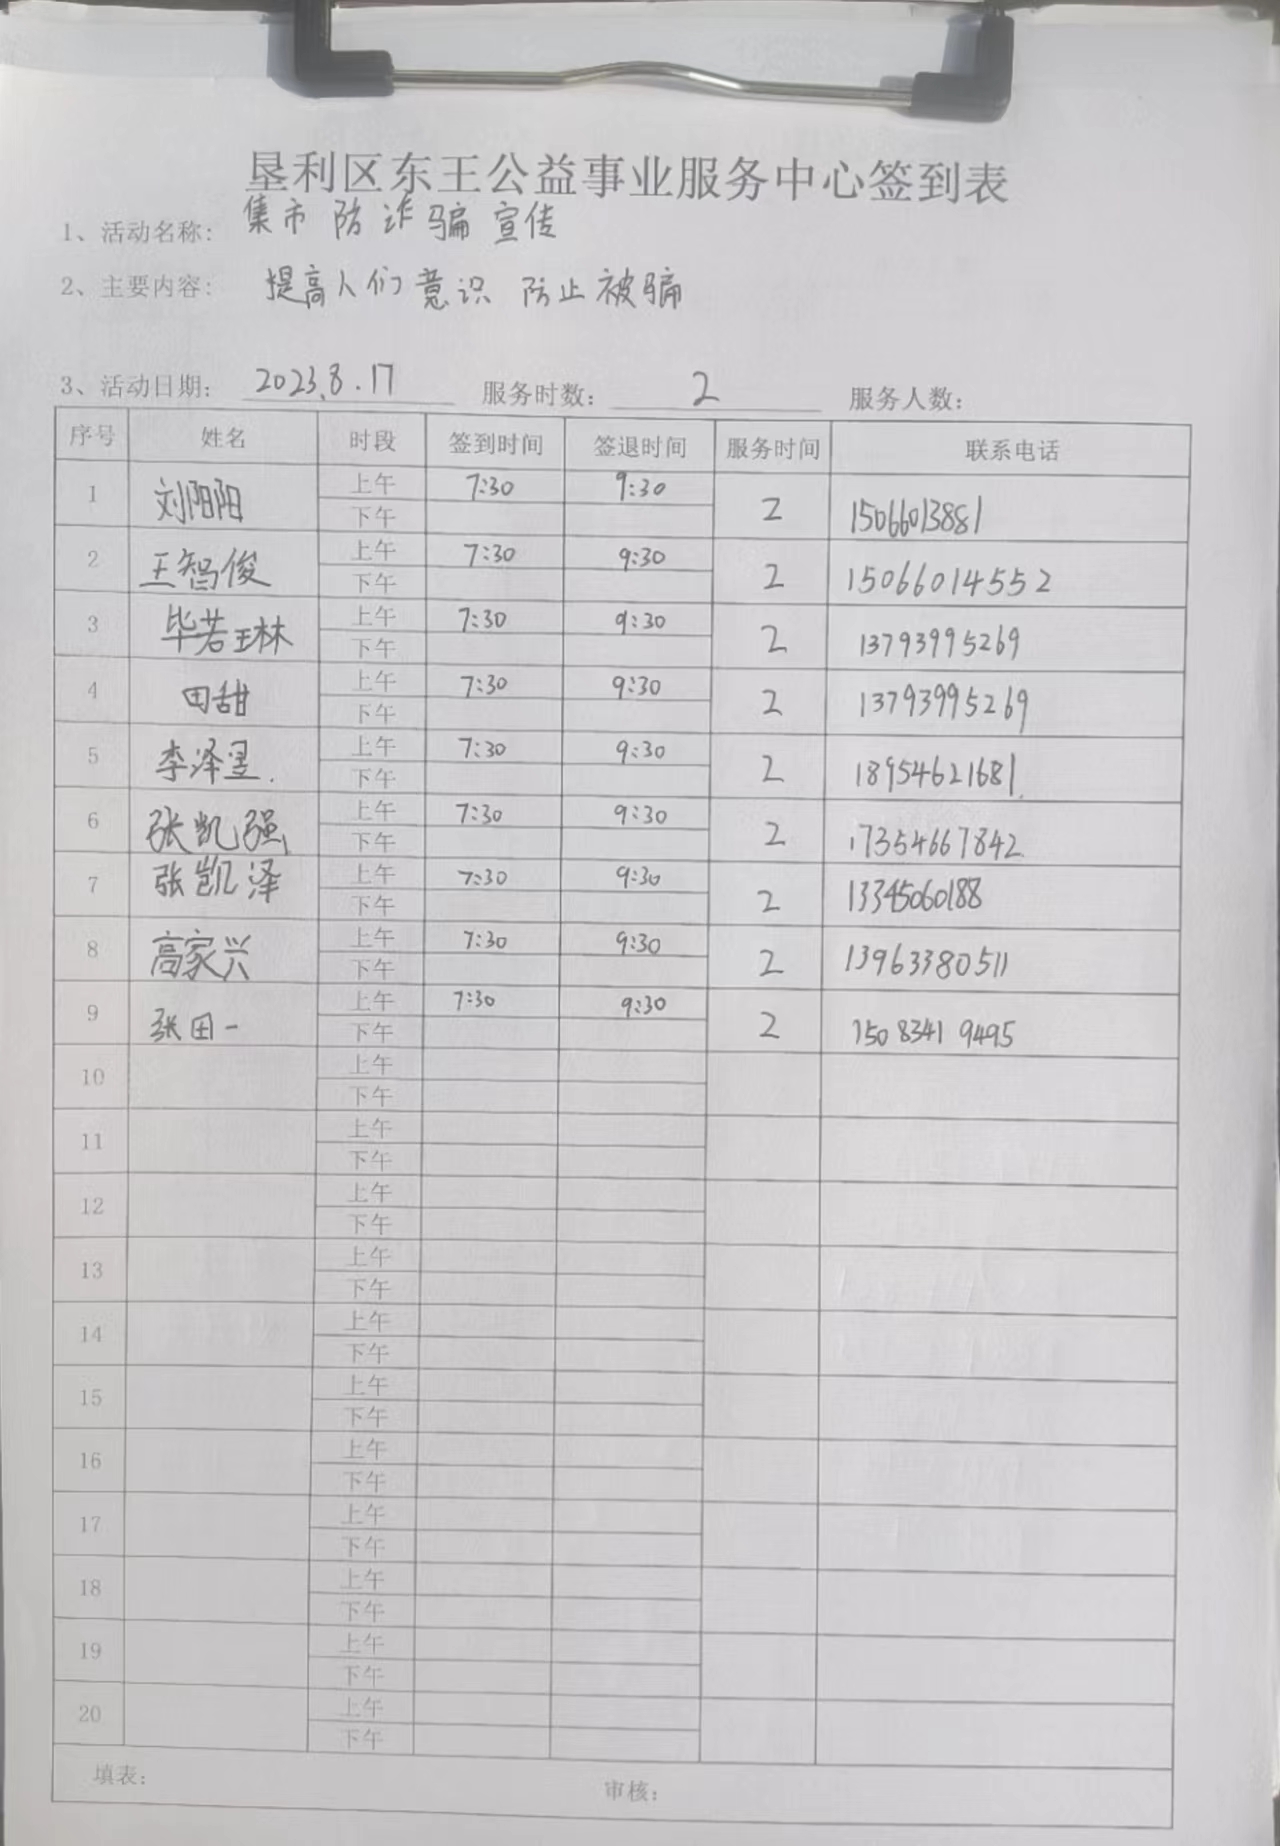 垦利区东王公益事业服务中心签到表
1、活动名称: 集市防诈骗宣传
2、主要内容: 提高人们意识 防止被骗
3、活动日期: 2023.8.17 服务时数: 2 服务人数:
序号 姓名 时段 签到时间 签退时间 服务时间 联系电话
1 刘阳阳 上午 7:30 9:30 2 15066013881
下午
2 王智俊 上午 7:30 9:30 2 15066014552
下午
3 毕若琳 上午 7:30 9:30 2 13793995269
下午
4 田甜 上午 7:30 9:30 2 13793995269
下午
5 李泽昱. 上午 7:30 9:30 2 18954621681
下午
6 张凯强 上午 7:30 9:30 2 17354667842
下午
7 张凯泽 上午 7:30 9:30 2 13345060188
下午
8 高家兴 上午 7:30 9:30 2 13963380511
下午
9 张田一 上午 7:30 9:30 2 150 8341 9495
下午
10 上午
下午
11 上午
下午
12 上午
下午
13 上午
下午
14 上午
下午
15 上午
下午
16 上午
下午
17 上午
下午
18 上午
下午
19 上午
下午
20 上午
下午
填表: 审核: